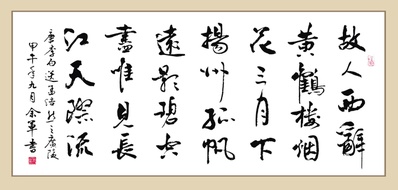 故人西辭
黃鶴樓烟
花三月下
揚州孤帆
遠影碧空
盡惟見長
江天際流
唐李白送孟浩然之廣陵
甲午年九月余書